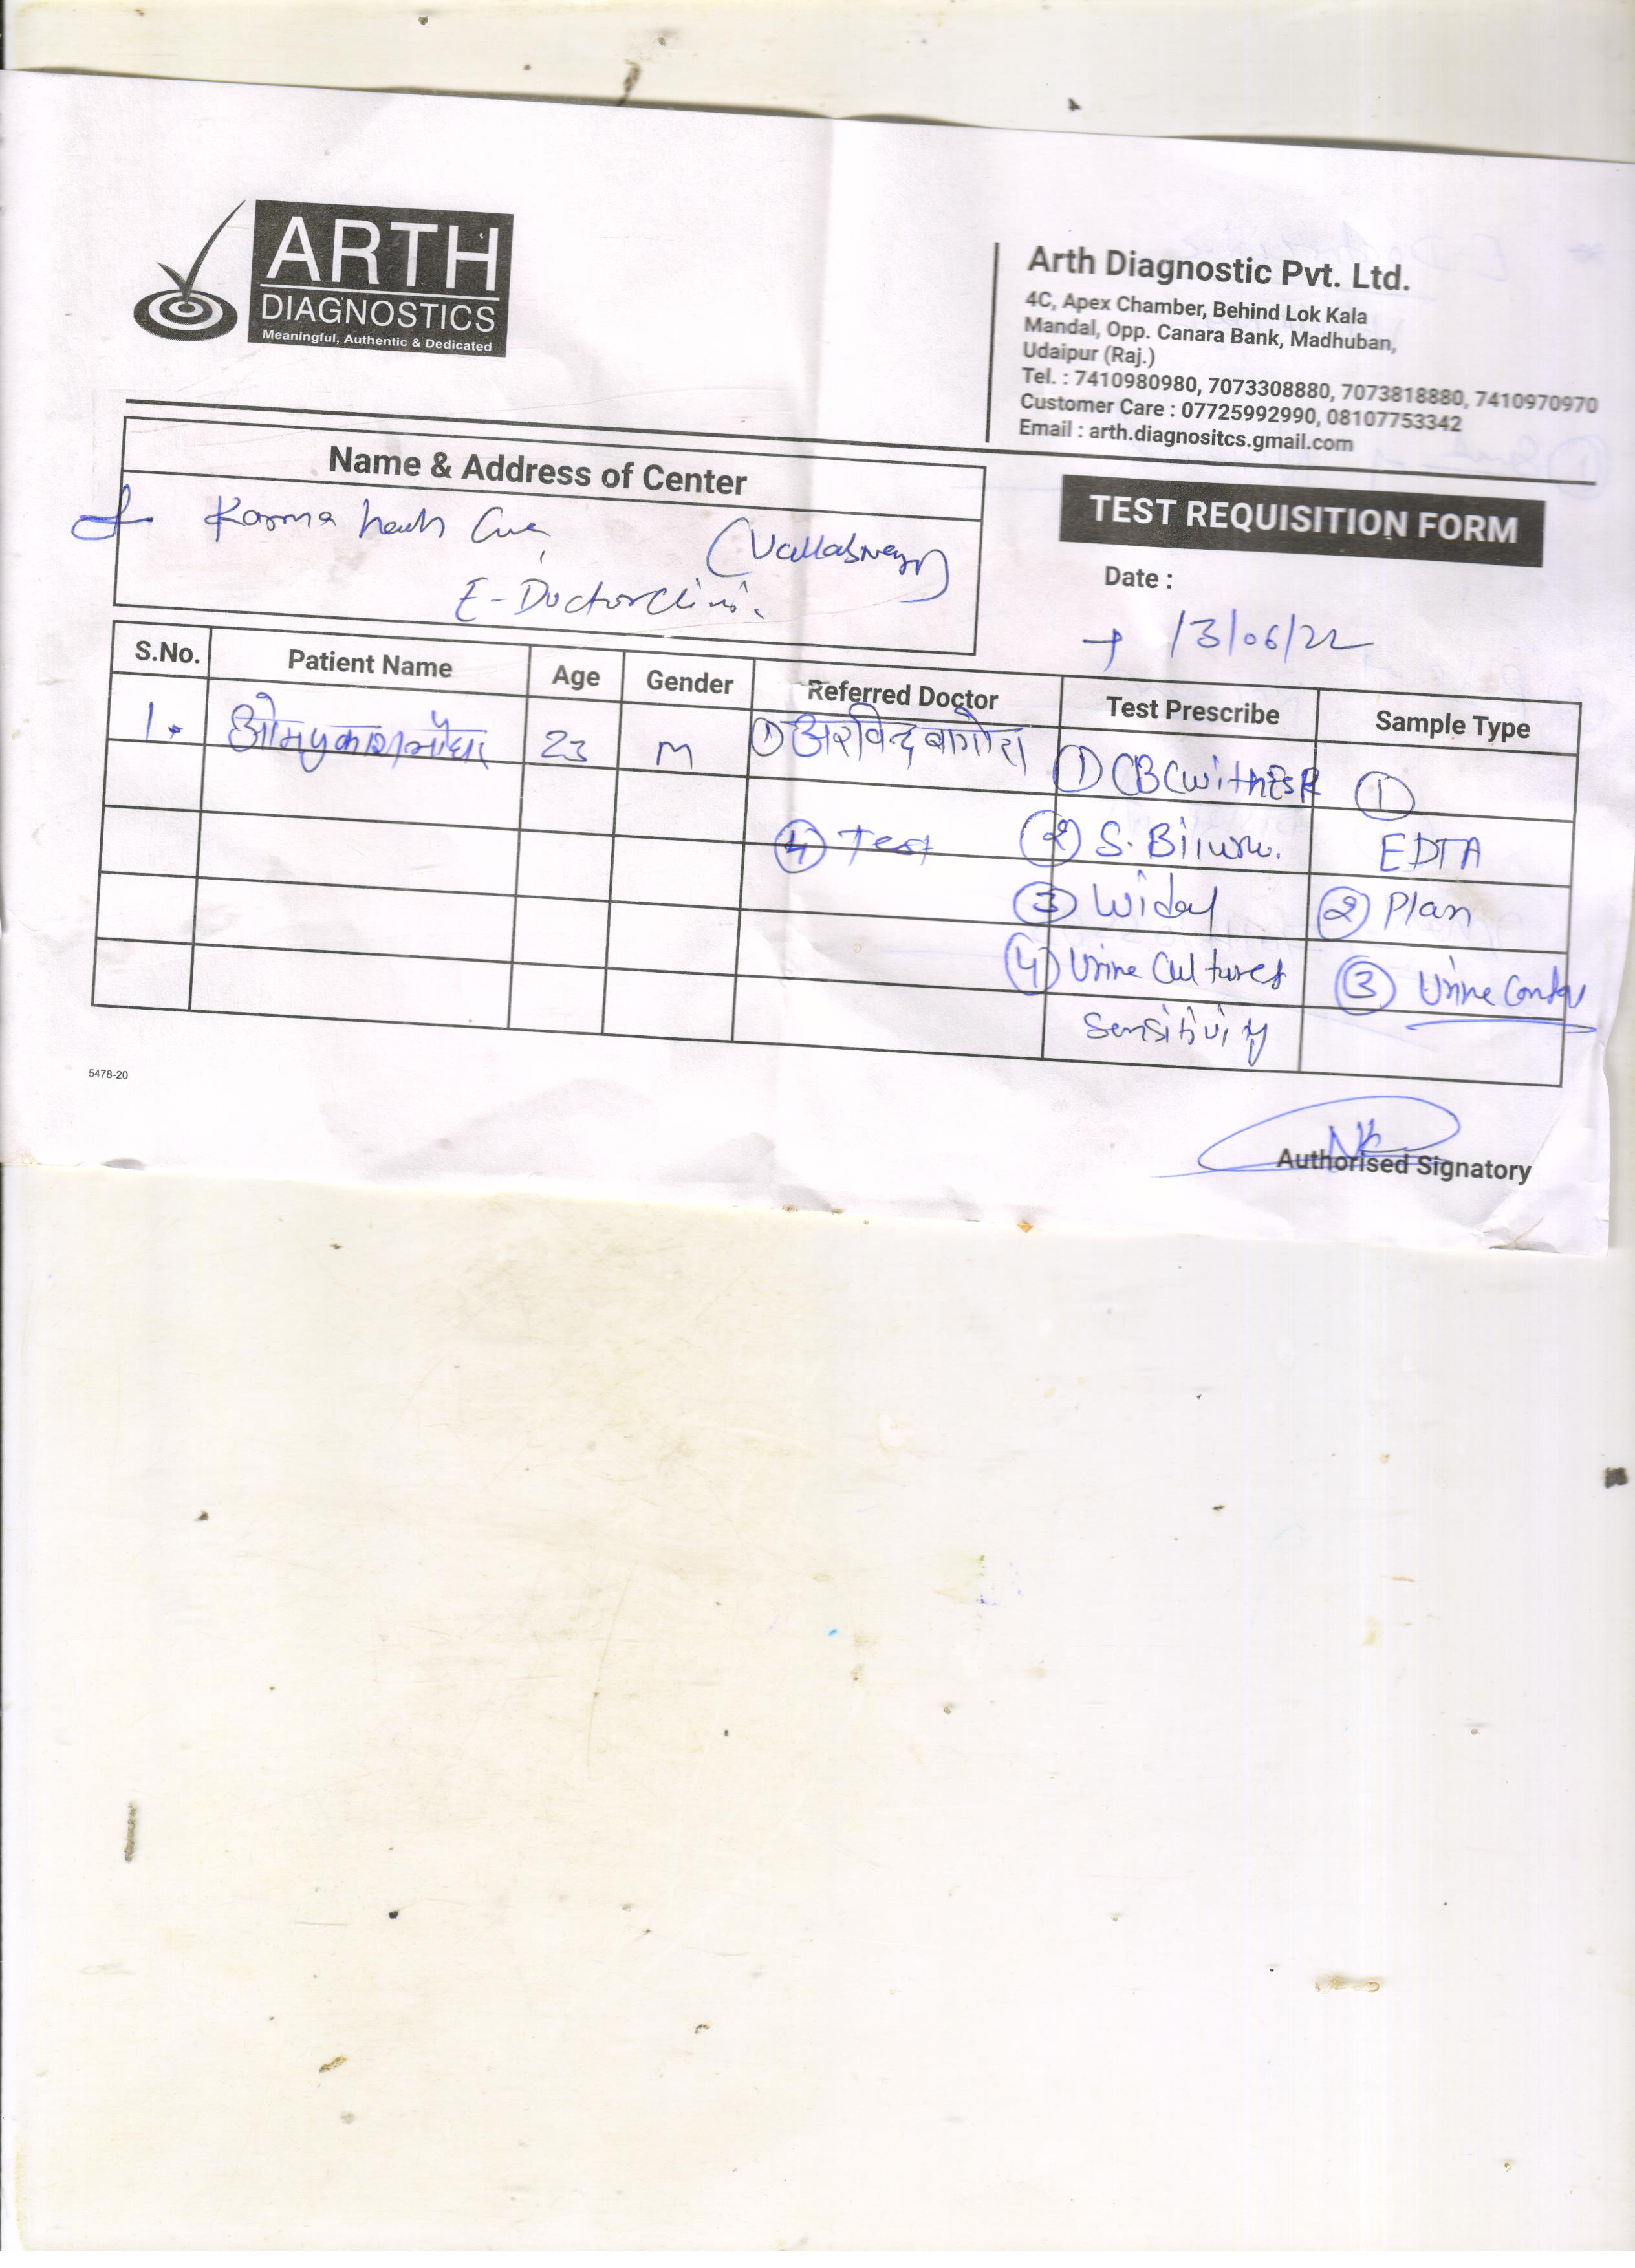 ARTH
DIAGNOSTICS
Meaningful, Authentic & Dedicated
Arth Diagnostic Pvt. Ltd.
4C, Apex Chamber, Behind Lok Kala
Mandal, Opp. Canara Bank, Madhuban,
Udaipur (Raj.)
Tel. : 7410980980, 7073308880, 7073818880, 7410970970
Customer Care : 07725992990, 08107753342
Email : arth.diagnositcs.gmail.com
Name & Address of Center
Karma
E-Doctor
TEST REQUISITION FORM
Date :
13/06/22
S.No. Patient Name Age Gender Referred Doctor Test Prescribe Sample Type
1. ओमप्रकाश 23 M ① अरविन्द बागोरा ① CBC with ESR ①
④ Test ② S. EDTA
③ Widal ② Plan
④ Urine Cultures ③ Urine
Sensitivity
5478-20
Authorised Signatory